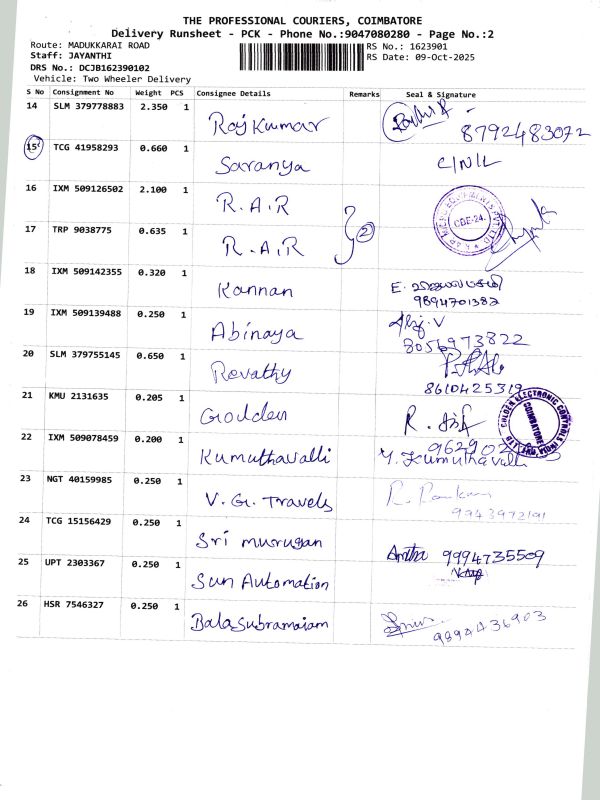 THE PROFESSIONAL COURIERS, COIMBATORE
Delivery Runsheet - PCK - Phone No.:9047080280 - Page No.:2
Route: MADUKKARAI ROAD
RS No.: 1623901
Staff: JAYANTHI
RS Date: 09-Oct-2025
DRS No.: DCJB162390102
Vehicle: Two Wheeler Delivery
S No Consignment No Weight PCS Consignee Details Remarks Seal & Signature
14 SLM 379778883 2.350 1 Rajkumar 8792483072
15 TCG 41958293 0.660 1 Saranya C/N/L
16 IXM 509126502 2.100 1 R.A.R
17 TRP 9038775 0.635 1 R.A.R 2
18 IXM 509142355 0.320 1 Kannan E.
9894701382
19 IXM 509139488 0.250 1 Abinaya
8056973822
20 SLM 379755145 0.650 1 Revathy
8610425319
21 KMU 2131635 0.205 1 Godden R.
GOLDEN ELECTRONIC CONTROLS COIMBATORE
22 IXM 509078459 0.200 1 Kumuthavalli Y. Kumuthavalli
23 NGT 40159985 0.250 1 V.G. Travels
9943972191
24 TCG 15156429 0.250 1 Sri murugan
Anitha 9994735509
25 UPT 2303367 0.250 1 Sun Automation
26 HSR 7546327 0.250 1 Balasubramaiam 9894436903